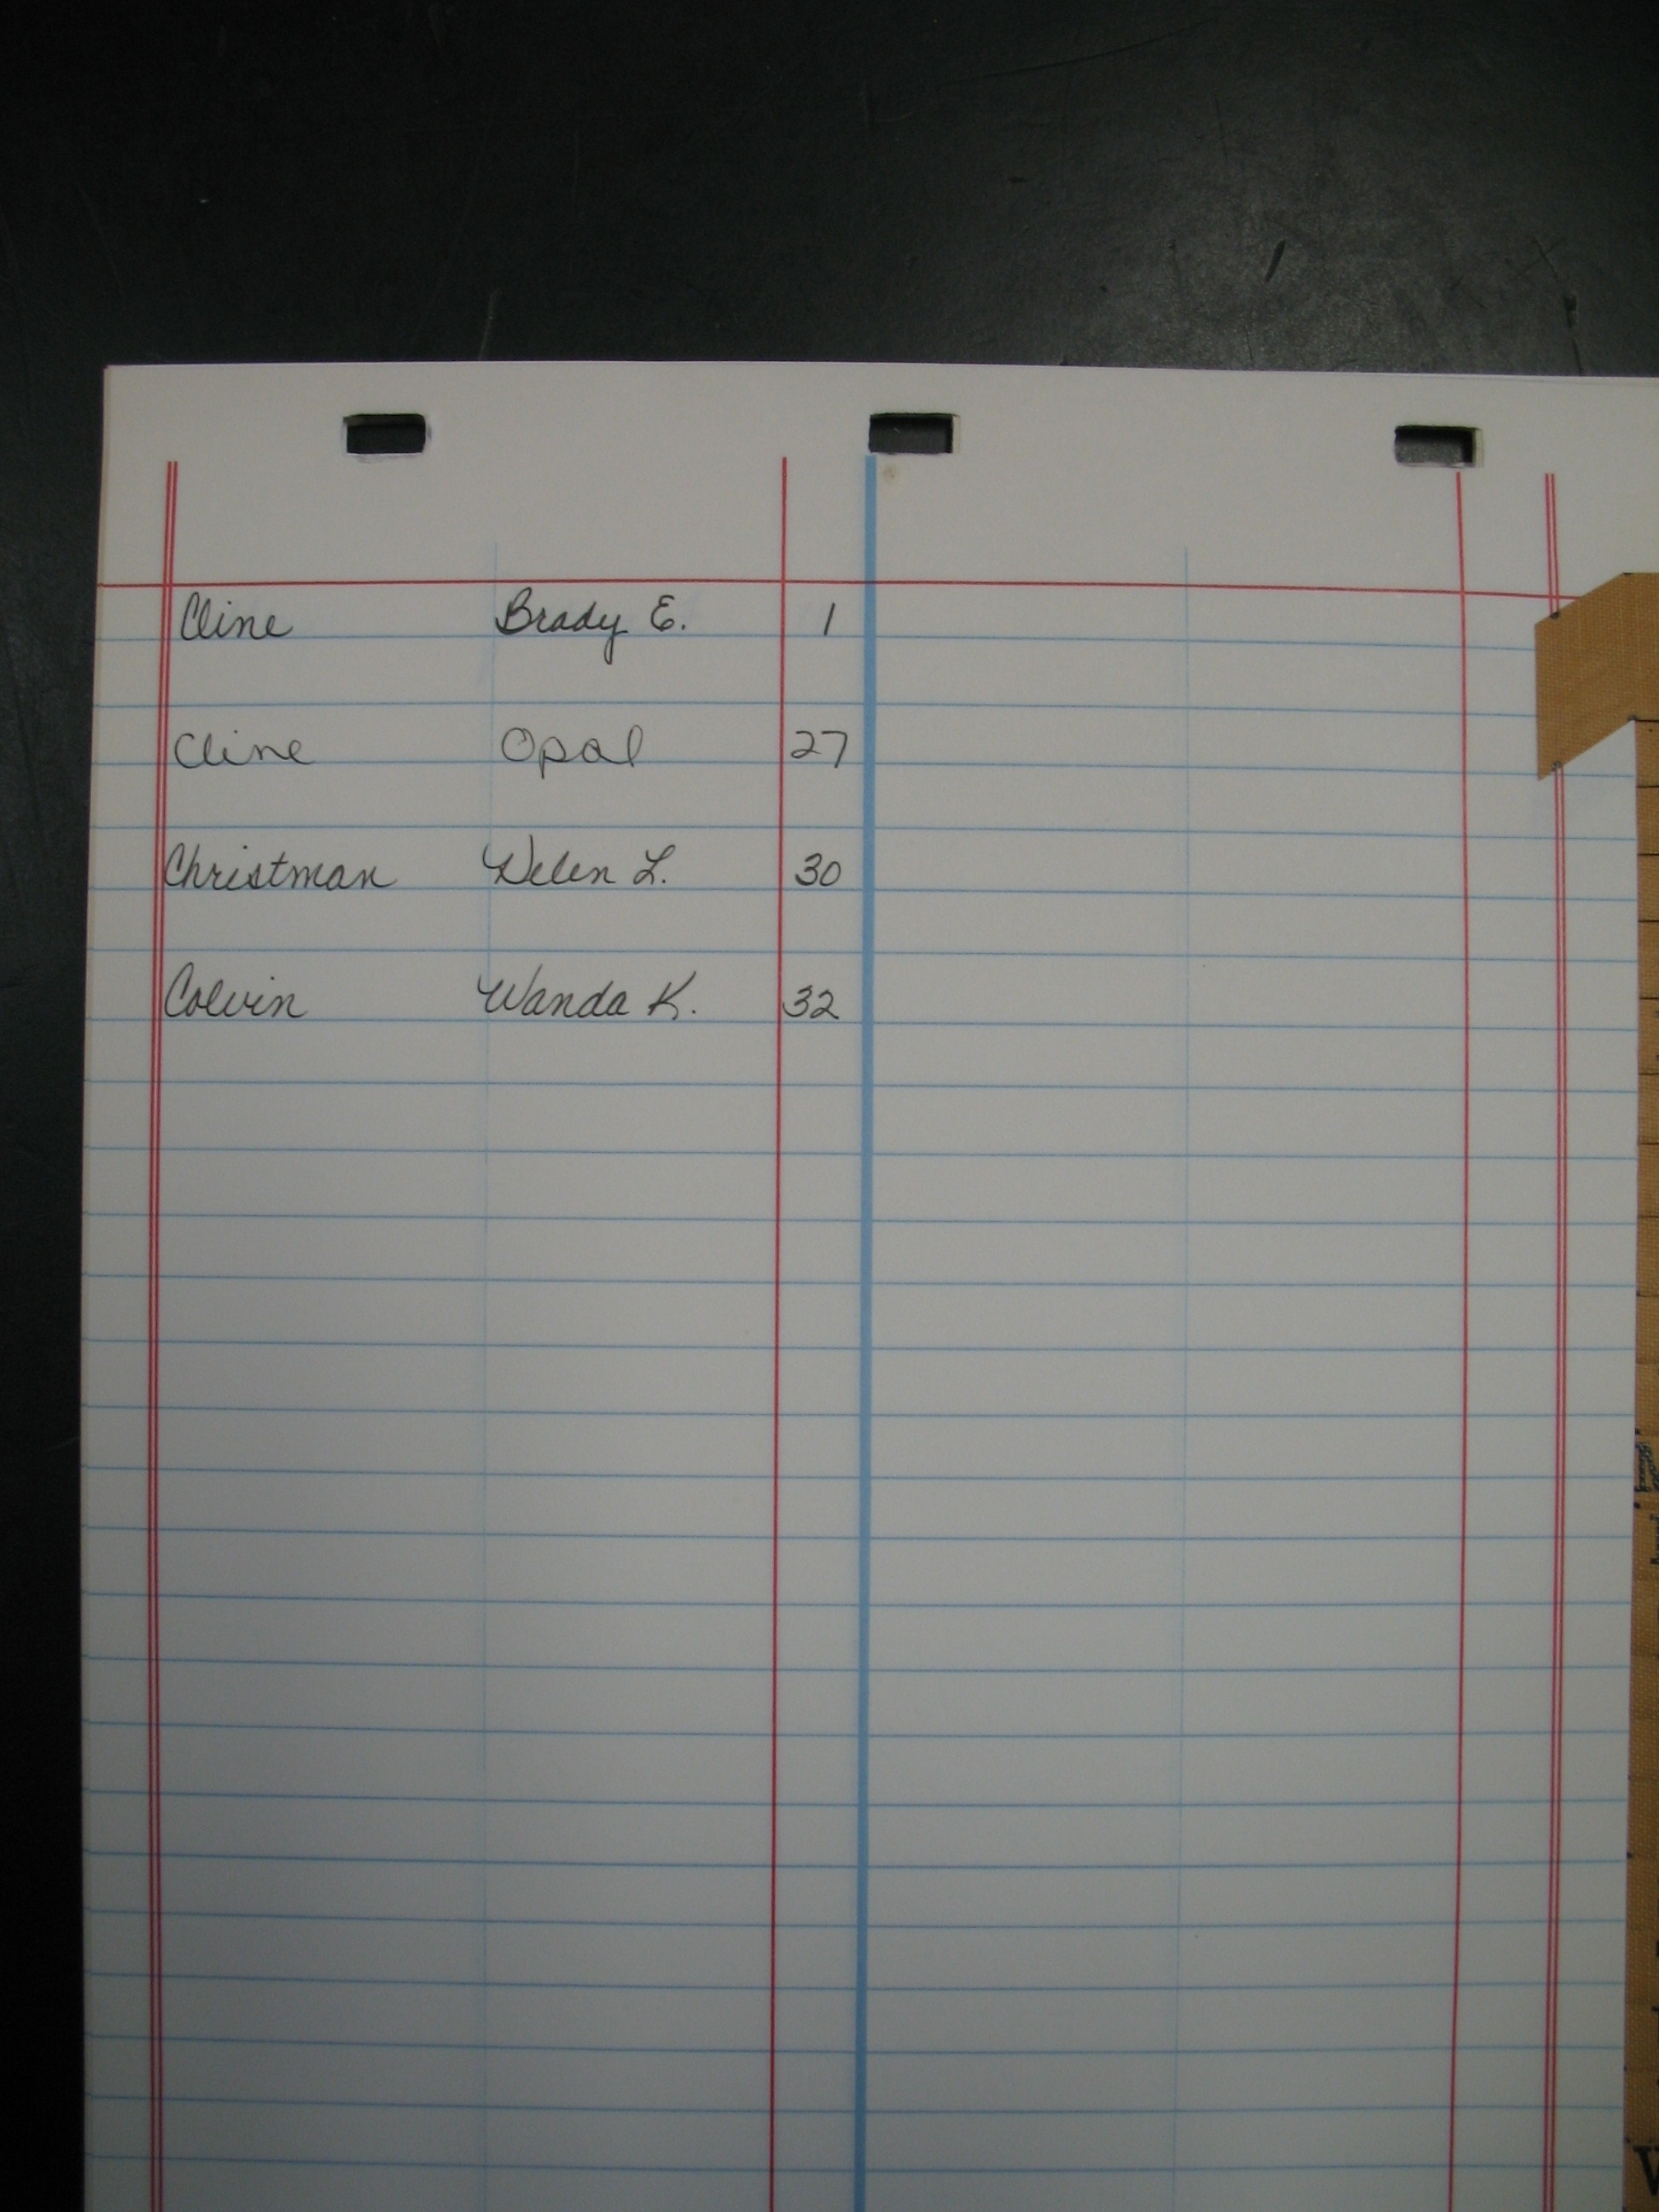 Cline Brady E. 1
Cline Opal 27
Christman Helen L. 30
Colvin Wanda K. 32